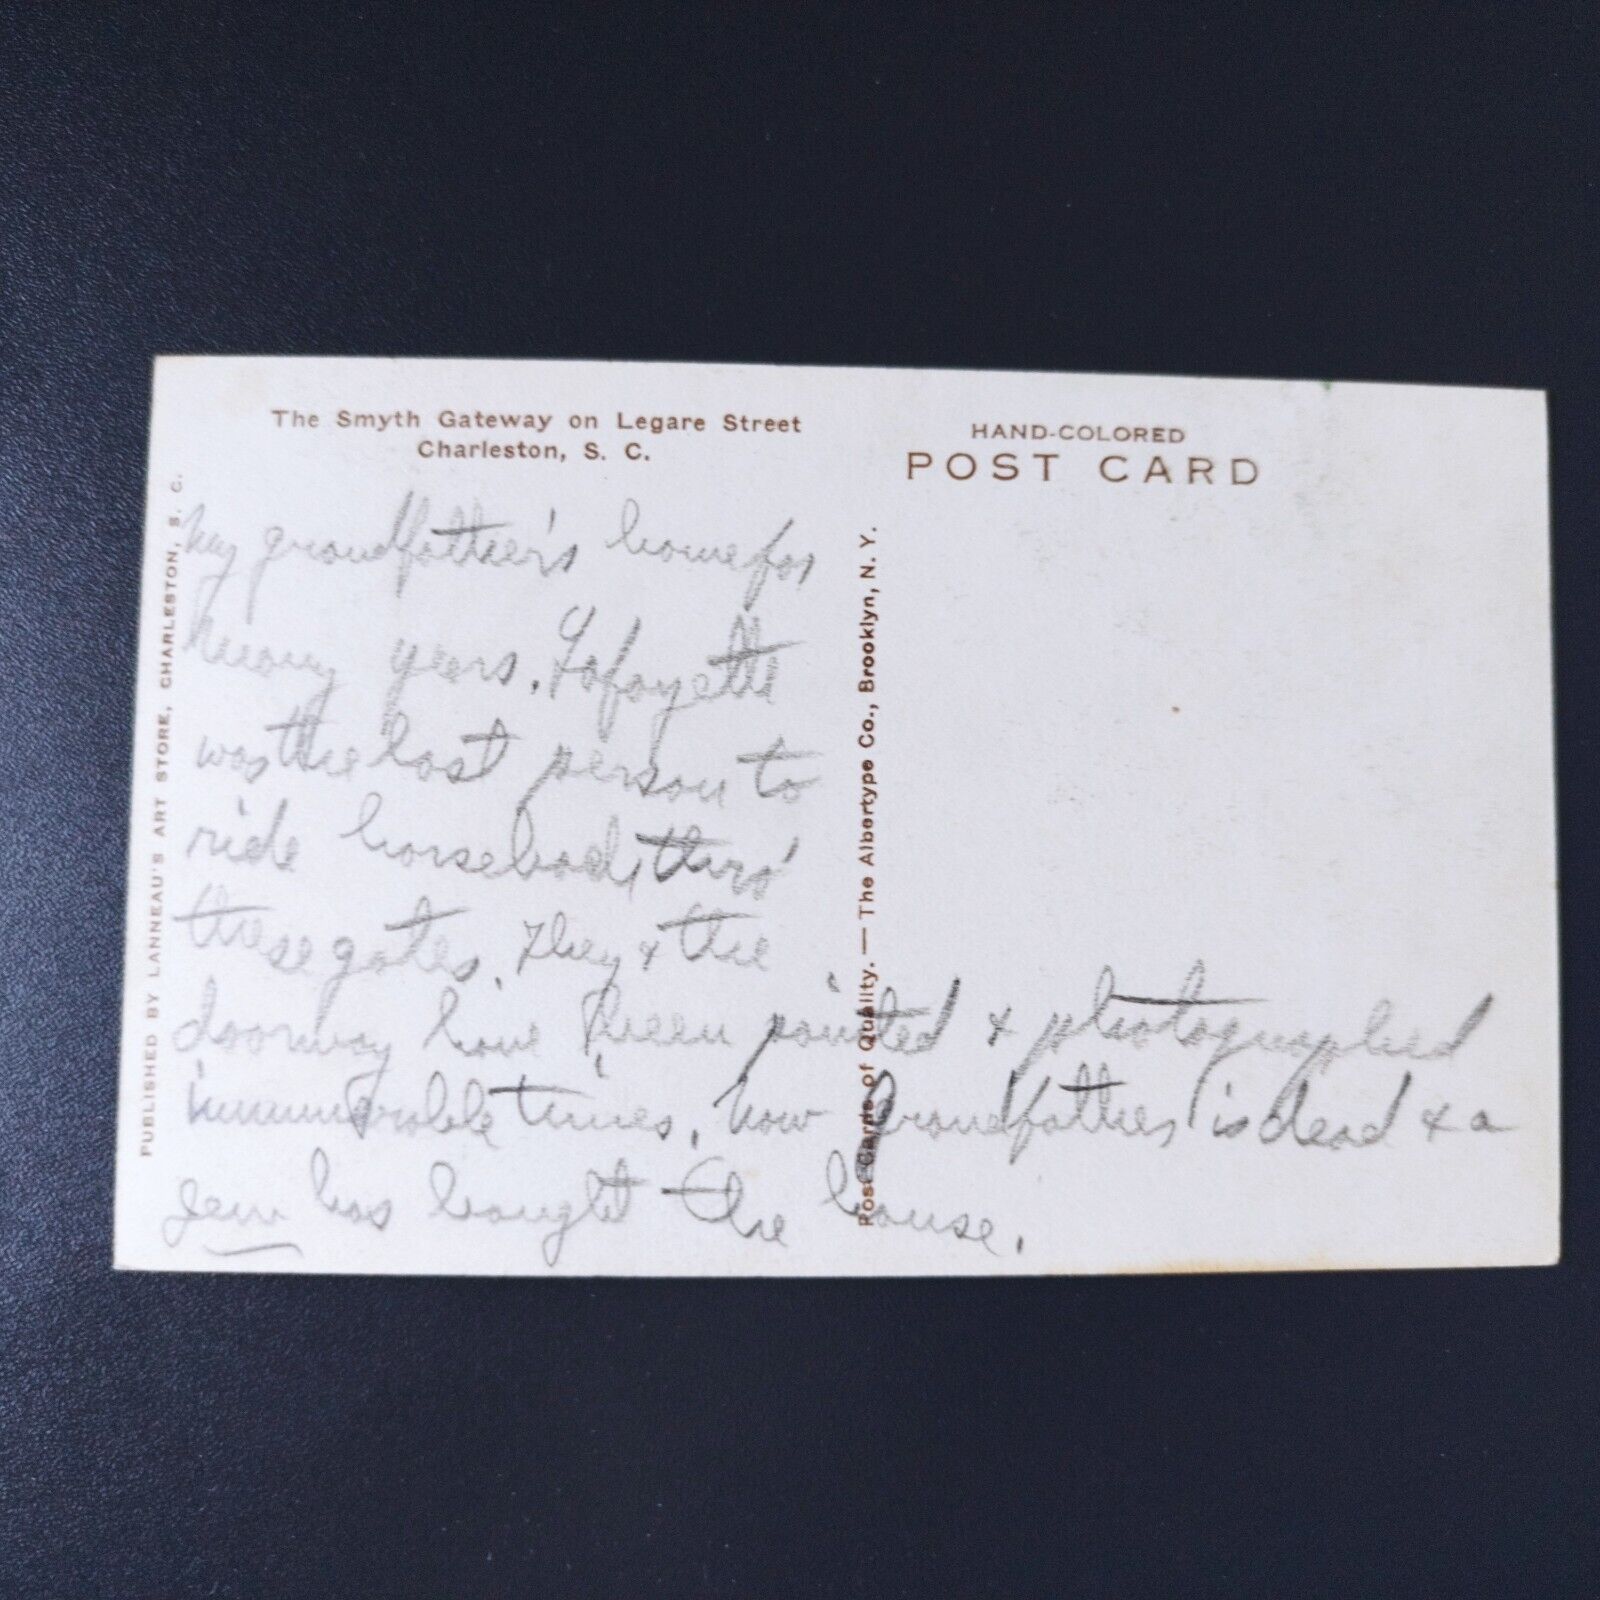 The Smyth Gateway on Legare Street
Charleston, S. C.
HAND-COLORED
POST CARD
PUBLISHED BY LANNEAU'S ART STORE, CHARLESTON, S. C.
Post Cards of Quality. — The Albertype Co., Brooklyn, N. Y.
My grandfather's home for
many years. Lafayette
was the last person to
ride horseback thro'
these gates. They & the
doorway have been painted & photographed
innumerable times. Now Grandfather is dead & a
Jew has bought the house.